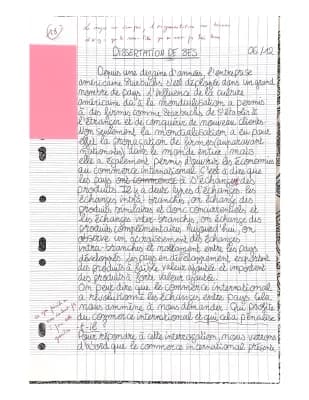 13
DISSERTATION DE SES 06/12
Depuis une dizaine d'années, l'entreprise
américaine Starbucks s'est développée dans un grand
nombre de pays. L'influence de la culture
américaine du à la mondialisation a permis
à des firmes comme Starbucks de s'établir à
l'étranger et de conquérir de nouveaux clients.
Non seulement la mondialisation a eu pour
effet la propagation de firmes auparavant
nationales dans le monde entier, mais
elle a également permis d'ouvrir les économies
au commerce international. C'est à dire que
les pays ont commencé à s'échanger des
produits. Il y a deux types d'échanges: les
échanges intra-branches, on échange des
produits similaires et donc concurrentiels et
les échanges inter-branches, on échange des
produits complémentaires. Aujourd'hui, on
observe un accroissement des échanges
intra-branches et notamment entre les pays
développés. Les pays en développement, exportent
des produits à faible valeur ajoutée et importent
des produits à forte valeur ajoutée.
On peut dire que le commerce international
a révolutionné les échanges entre pays. Cela
nous ammène à nous demander: Qui profite
du commerce international et qui cela pénalise
t-il?
Pour répondre à cette interrogation, nous verrons
d'abord que le commerce international présente